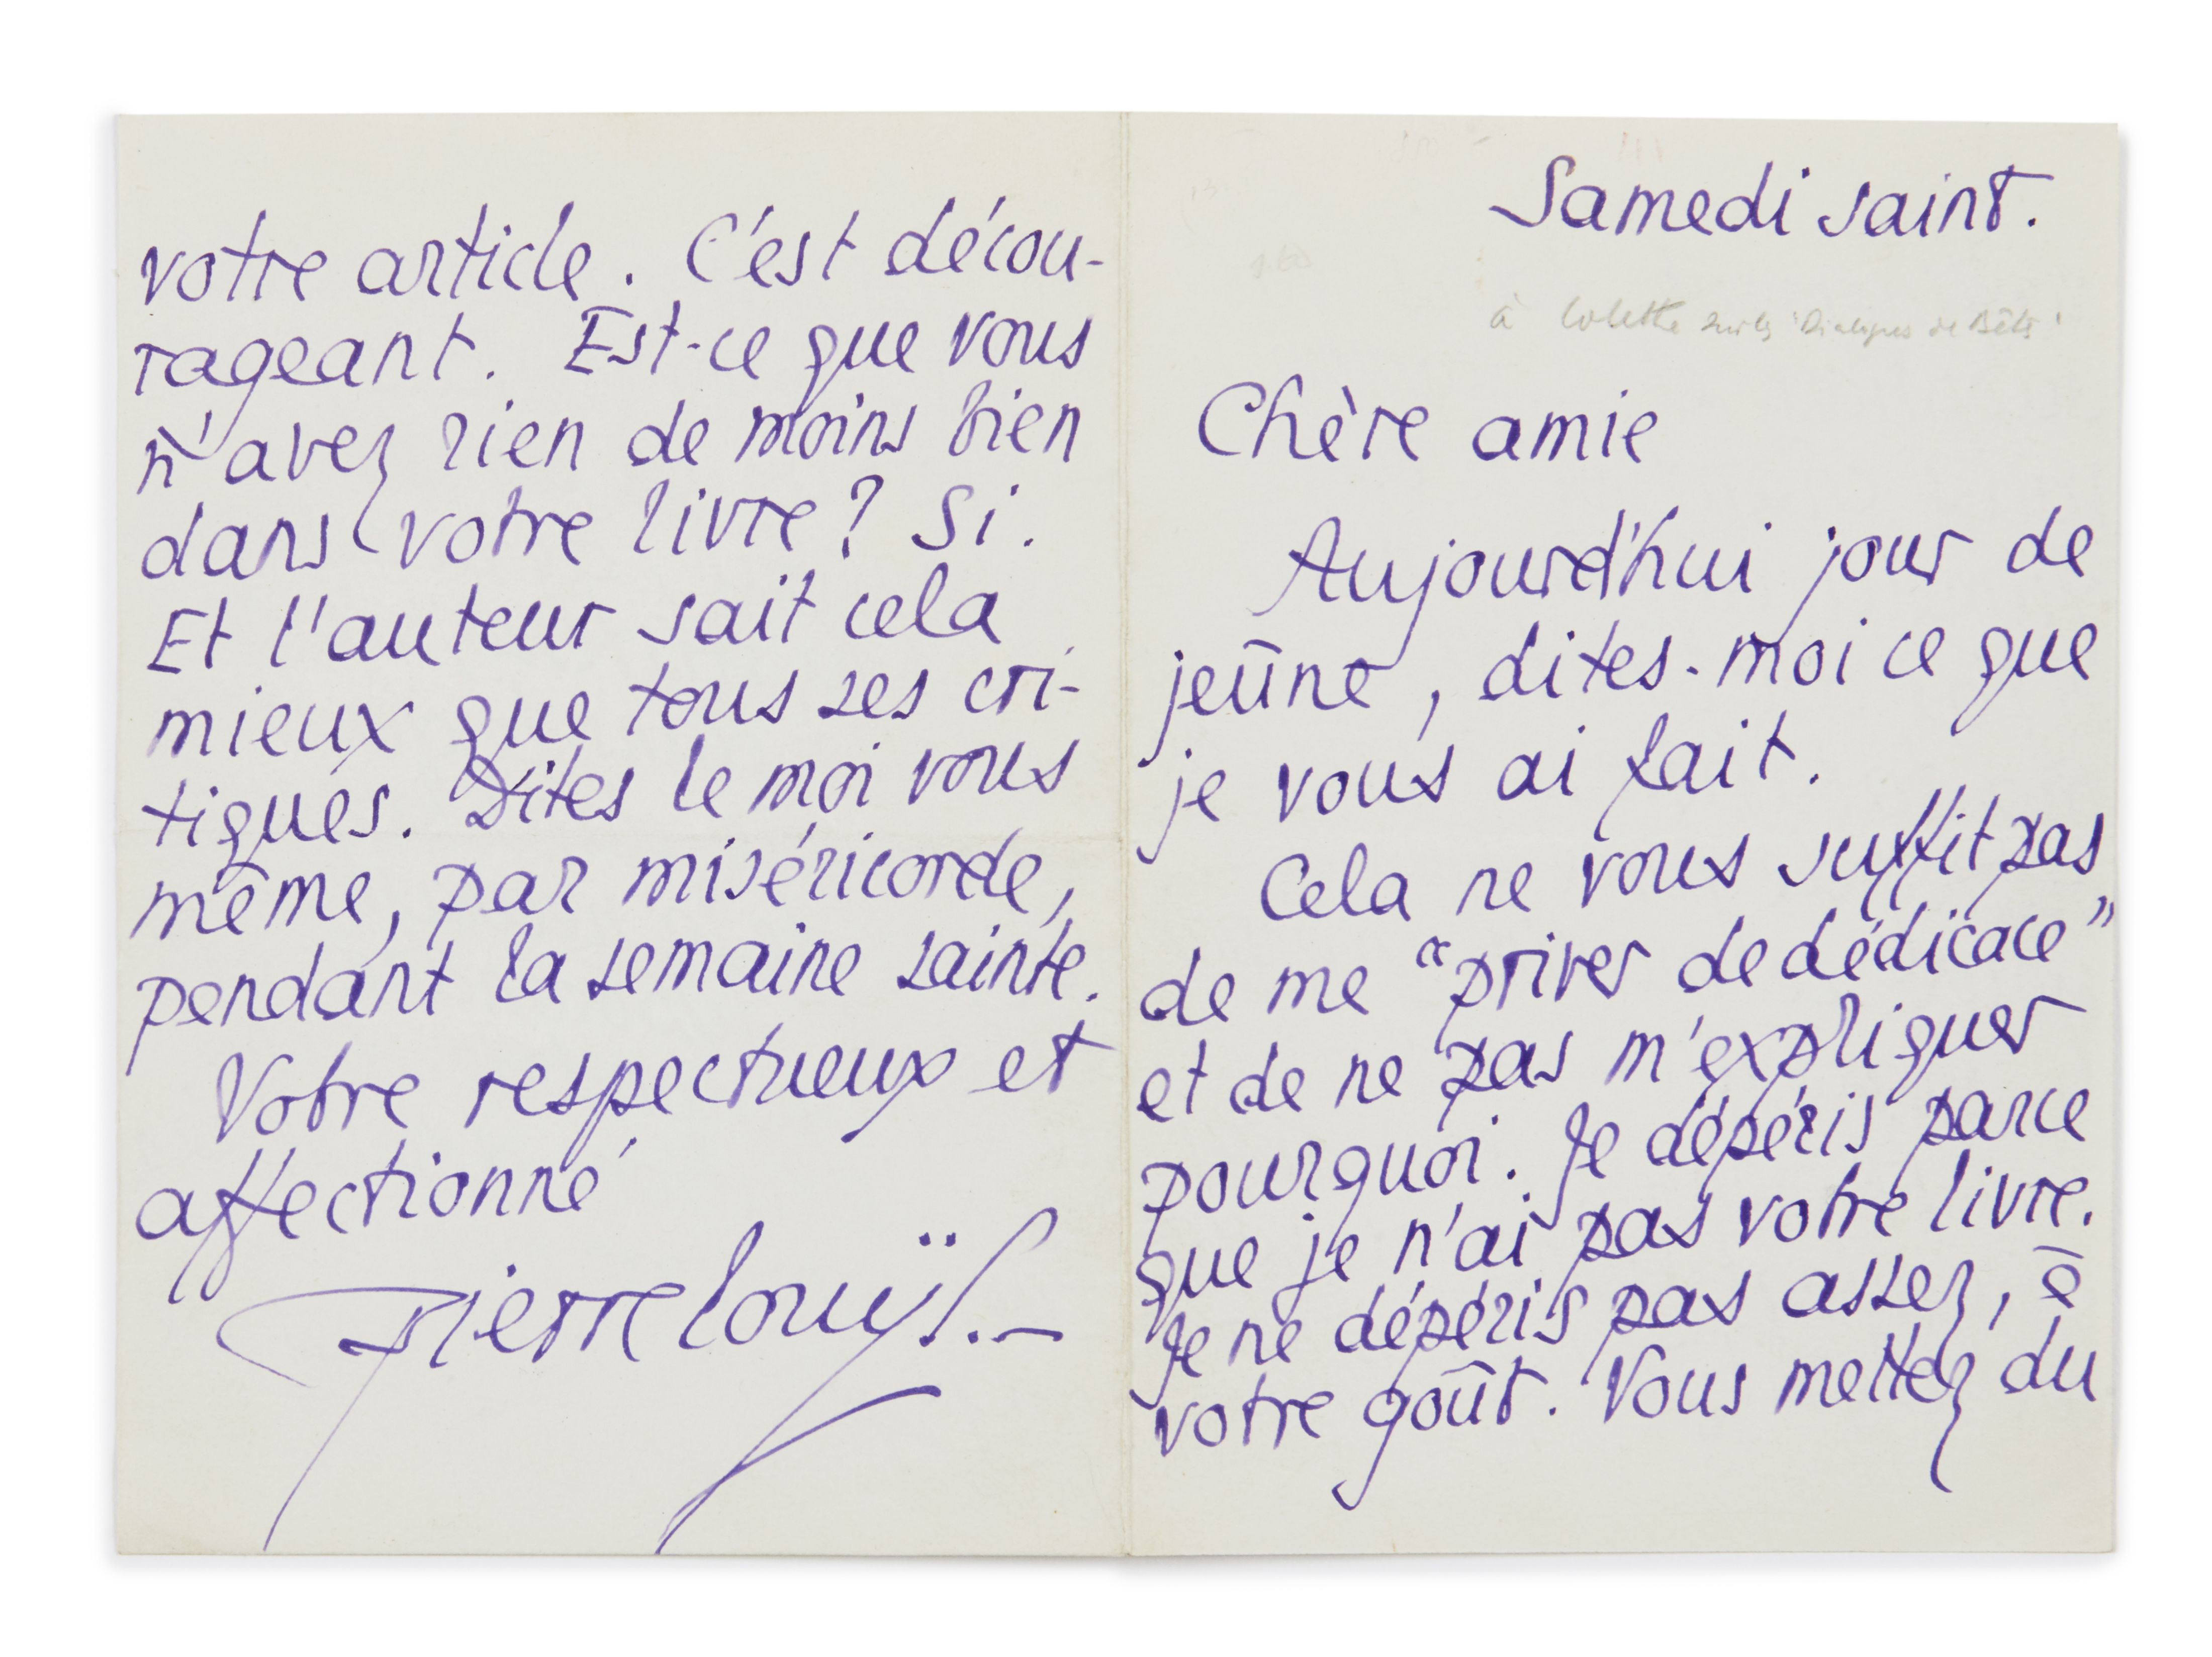 Samedi saint.
à Colette sur les "Dialogues de Bêtes"
Chère amie
Aujourd'hui jour de
jeûne, dites-moi ce que
je vous ai fait.
Cela ne vous suffit pas
de me "priver de dédicace"
et de ne pas m'expliquer
pourquoi. Je dépéris parce
que je n'ai pas votre livre.
Je ne dépéris pas assez, à
votre goût. Vous mettez du
votre article. C'est décou-
rageant. Est-ce que vous
n'avez rien de moins bien
dans votre livre? Si.
Et l'auteur sait cela
mieux que tous ses cri-
tiques. Dites le moi vous
même, par miséricorde,
pendant la semaine sainte.
Votre respectueux et
affectionné
Pierre Louÿs.—